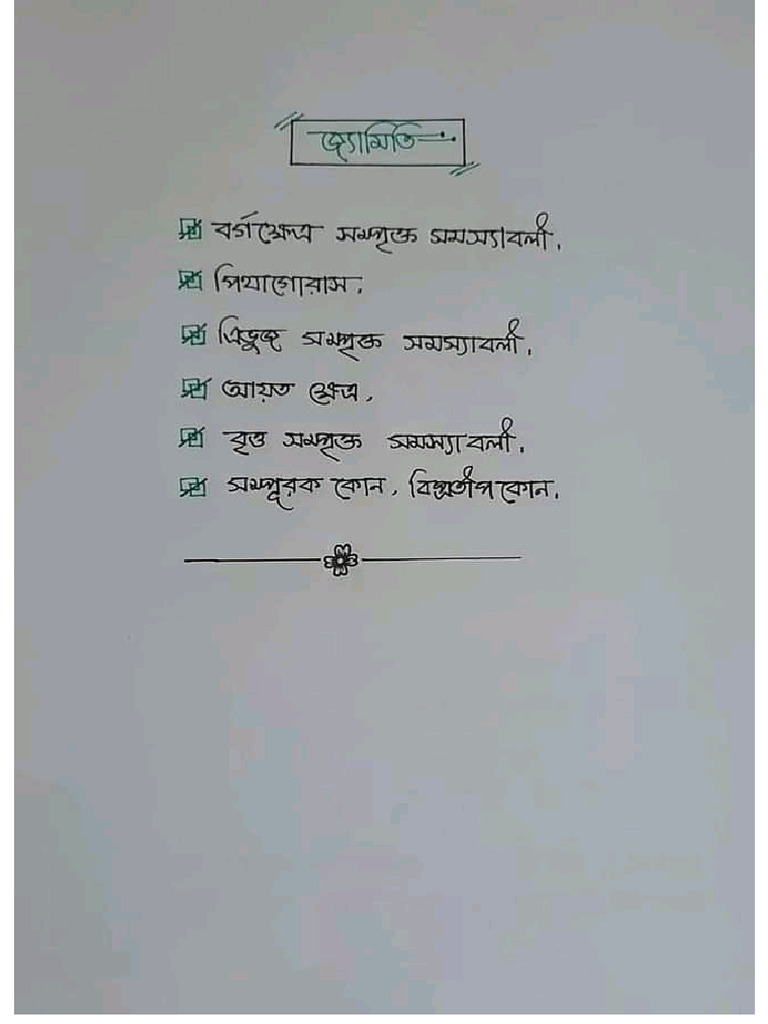 জ্যামিতি
বর্গক্ষেত্র সম্পৃক্ত সমস্যাবলী,
পিথাগোরাস,
ত্রিভুজ সম্পৃক্ত সমস্যাবলী,
আয়ত ক্ষেত্র,
বৃত্ত সম্পৃক্ত সমস্যাবলী,
সম্পূরক কোন, বিপ্রতীপ কোন,